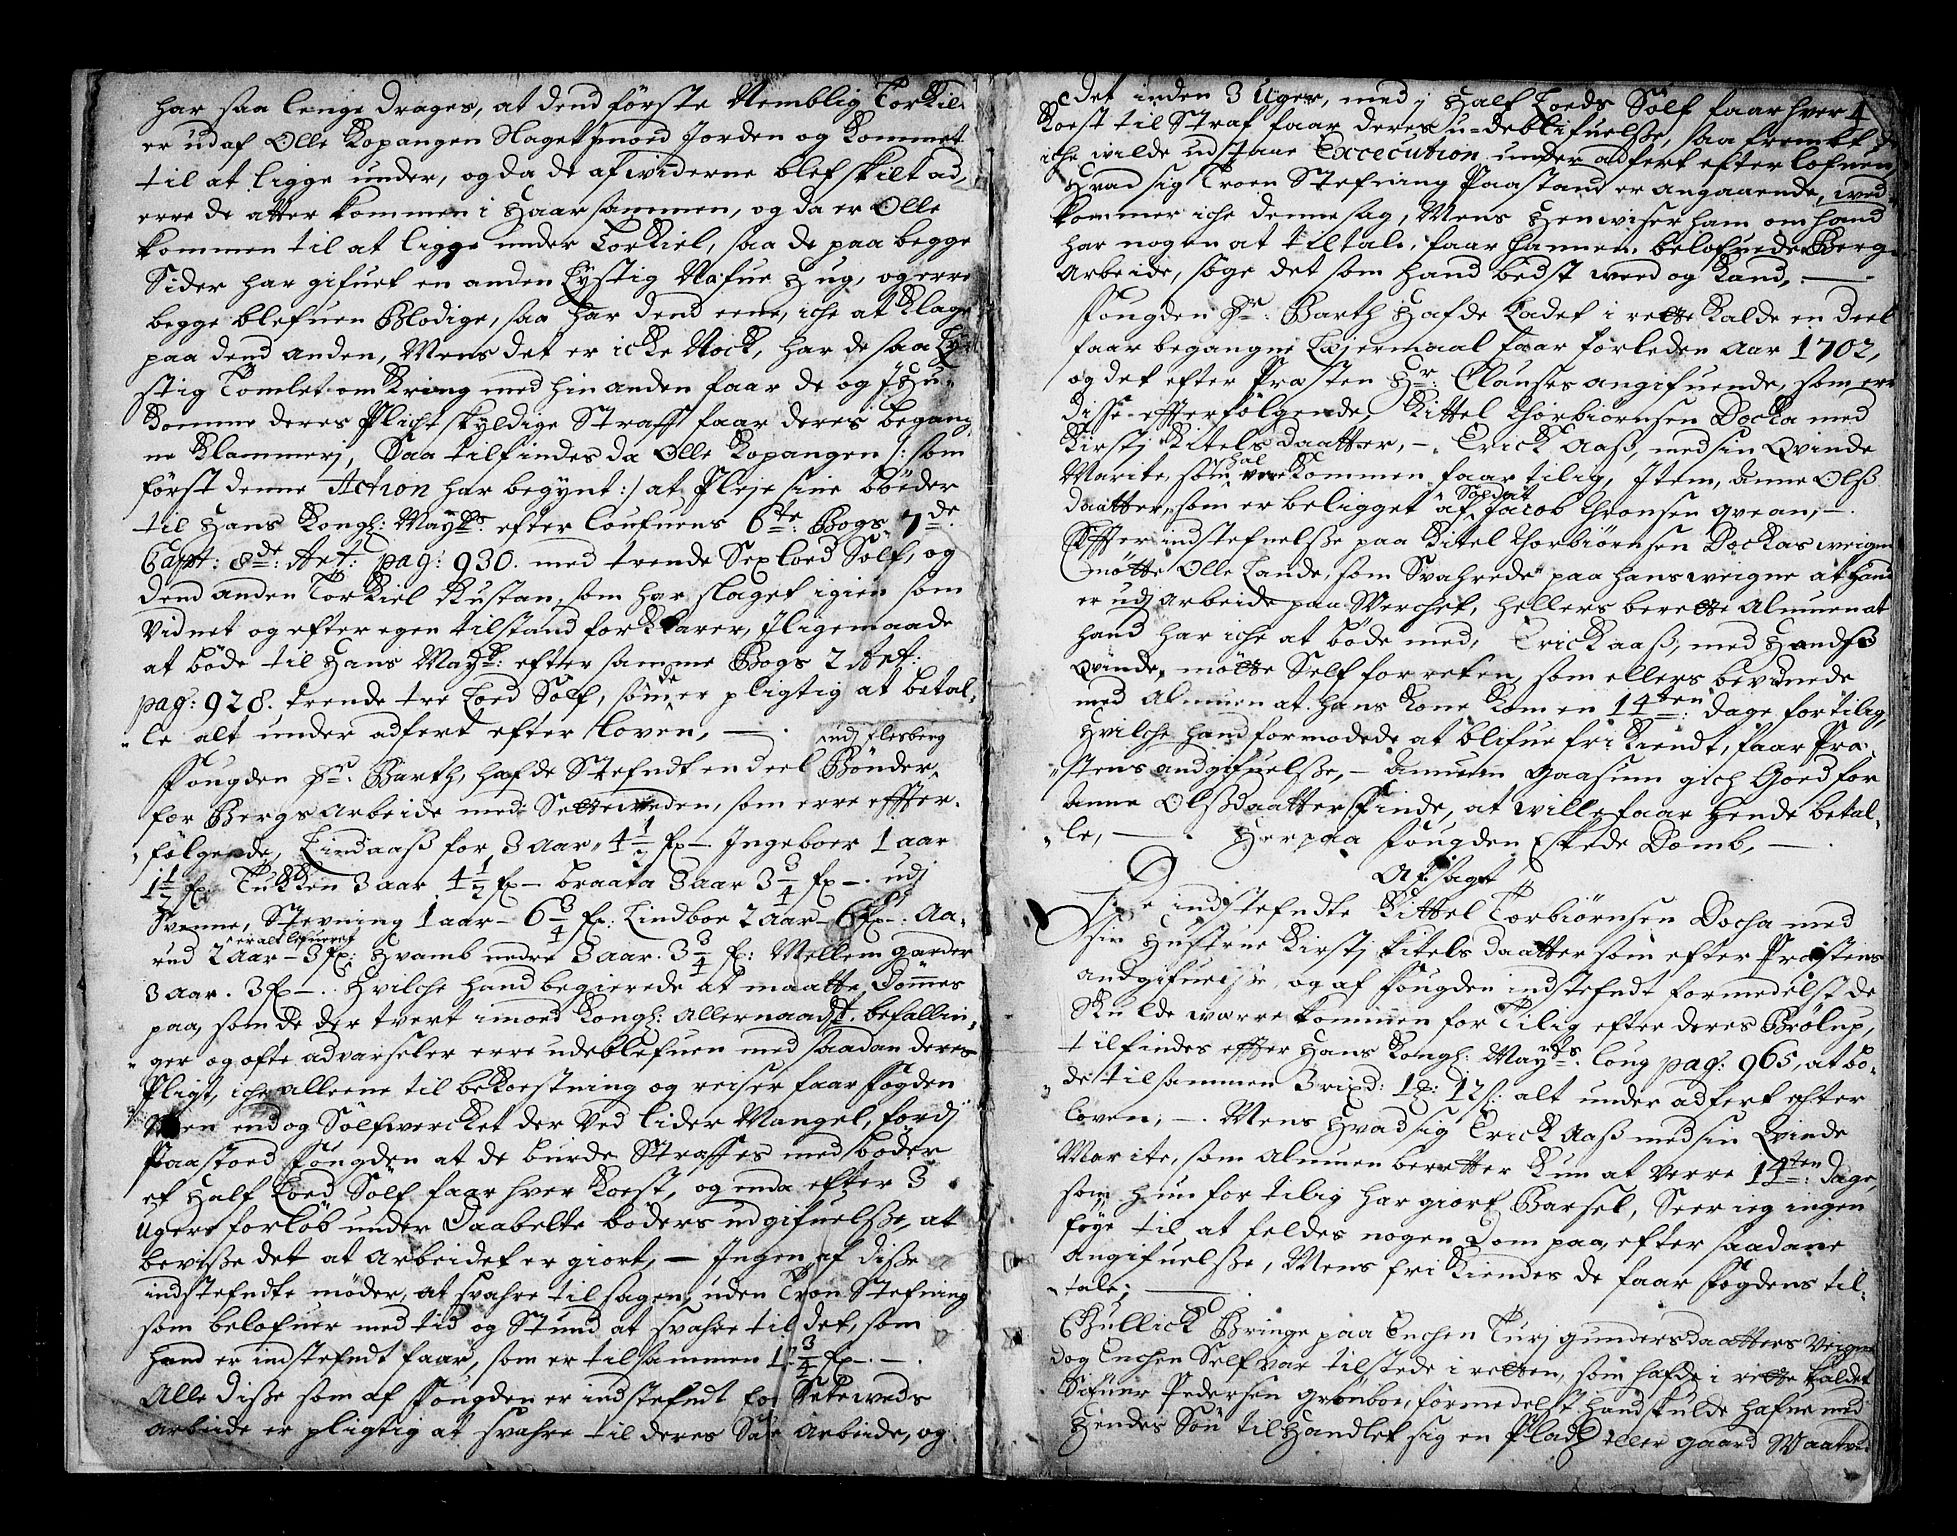 har saa lenge drages, at dend förste Nemblig Torkil
er ud af Olle Kopangen Slaget imod Jorden og kommet
til at ligge under, og da de af widerne blef skilt ad,
erre de atter kommen i Haar sammen, og da er Olle
kommen til at ligge under Torkiel, saa de paa begge
Sider har gifuet en anden Lystig Nafue Hug, og erre
begge blefuen Blodige, saa har dend eene, iche at Klage
paa dend anden, Mens det er icke Nock, har de saa Ly
stig Tomlet omkring med hin anden faar de og
komme deres Plichtskyldige Straff faar deres begang
ne Klammerj, Saa tilfindes da Olle Kopangen /: som
först denne Action har begynt :/ at Pleje sine bøeder
til Hans Kongl: Mayts: efter Loufuens 6te: Bogs 7de
Capt: 8de: Art: pag: 930. med trende Sex loed Sölf, og
dend anden Torkiel Rustan, som har slaget igien som
Vidnet og efter egen tilstand forklarer, Iligemaade
at böde til Hans Mayts: efter samme Bogs 2 Art:
pag: 928. trende tre Loed Sölf, som de er pligtig at betal,
le alt under adfert efter Loven, —.
udj flesberg
Fougden Sr. Barth, hafde Stefndt en deel Bönder,
for Bergs Arbeide med Setteweden, som erre effter,
fölgende, Lindaaß for 3 Aar, 4 1/2 fx — Ingeboer 1 aar
1 1/2 fx. Tukken 3 aar 4 1/2 fx — braata 3 aar 3 3/4 fx —. udj
Svenne, Stevning 1 aar — 6 3/4 fx: Lindboe 2 Aar — 6 fx —. Aa,
er alt lefueret
rud 2 Aar — 3 fx: Hvamb nedre 3 aar. 3 3/4 fx: Mellem garder
3 aar. 3 fx —. Hvilche hand begierede at maatte Dömmes
paa, som de der tvert imoed Kongl: Allernaadst: befallin,
ger og ofte advarseler erre udeblefuen med saadan deres
Pligt, iche alleene til bekoestning og reiser faar fogden
Men end og Sölfwercket der ved lider Mangel, fordj
Paastoed Fougden at de burde Straffes med böder
et Half Loed Sölf faar hver Koest, og enda efter 3
Ugers forlöb under Daabelte böders udgifuelsße, at
bevisße det at Arbeidet er giort, — Ingen af disße
indstefndte möder, at svahre til sagen, uden Tron Stefning
som belofuer med tid og Stund at svahre til det, som
hand er indstefndt faar, som er tilsammen 1 3/4 fx —.
Alle disße som af Fougden er indstefndt for Seteweds
Arbeide er pligtig at svahre til deres Arbeide, og
det inden 3 Uger, med j Half Loeds Sölf faar hver 4
Koest til Straf faar deres u=deblifuelsße, saa fremt de
iche wilde udstaae Excecution under adfert efter Lofuen,
Hvad sig Troen Stefning Paastand er angaaende, wed,
kommer iche denne sag, Mens Henwiser ham om hand
har nogen at tiltale, faar hannem belofuede Berg,
Arbeide, söge det som hand bedst weed og kand, —
Fougden Sr: Barth Hafde Ladet i rette kalde en deel
faar begangne Lejermaal faar forleden Aar 1702,
og det efter Præsten Hr: Clauses angifuende, som erre
Disse efterfölgende, Kittel Thorbiörnsen Docka med
Kirstj Kitels daatter, — Erick Aaß, med sin Qvinde
schal
Marite, som være kommen faar tilig, Item, Anne Olß
Soldat
daatter, som er beligget af Jacob Thronsen qvean, —.
Effter indstefnelsße paa Kitel Thorbiörnsen Dockas weigne
mötte Olle Lande, som Svahrede paa hans weigne at hand
er udj Arbeide paa Werchet, hellers berette Almuen at
hand har iche at böde med, Erick Aaß, med Handß
Qvinde, mötte Self for reten, som ellers bevidnede
med Almuen at hans Kone kom en 14ten: dage for tilig,
Hvilche hand formodede at blifue fri kiendt, faar Præ,
stens andgifuelsße, — Amuen Gaasum gich Goed for
Anne Olßdaatters Finde, at wille faar hende betal,
le, —. Herpaa Fougden Eskede Domb, —.
Afsagt
De indstefndte Kittel Torbiörnsen Docha med
sin Hustrue Kirstj Kitels daatter som efter Præstens
andgifuelsße, og af Fougden indstefndt formedelst de
Skulde wærre kommen for Tilig efter deres Brölup,
tilfindes effter Hans Kongl: Mayts. loug pag: 965, at bö,
de tilsammen 3 rixd: 1 : 12 s: alt under adfert efter
loven, —. Mens Hvad sig Erick Aaß med sin Qvinde
Marite, som Almuen beretter kun at verre 14ten: dage,
som hun for tilig har giort Barsel, Seer ieg ingen
föye til at feldes nogen Dom paa, efter saadane
Angifuelsße, Mens fri kiendes de faar fogdens til,
tale; —
Gullick Bringe paa Enchen Turj Gundersdaatters Veigne
dog Enchen Self var tilstede i retten, som hafde i rette kaldet
Sifuer Pedersen Grönboe, formedelst Hand skulde hafue med
Hendes Sön til Handlet sig en Pladß eller gaard Waatvi